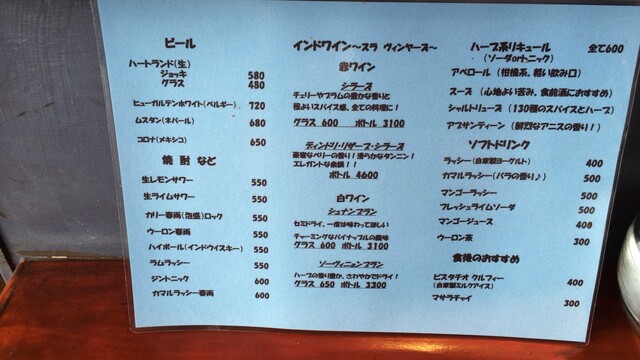 ビール
ハートランド(生)
ジョッキ 580
グラス 480
ヒューガルデンホワイト(ベルギー) 720
ムスタン(ネパール) 680
コロナ(メキシコ) 650
焼酎など
生レモンサワー 550
生ライムサワー 550
カリー春雨(泡盛)ロック 550
ウーロン春雨 550
ハイボール(インドウイスキー) 550
ラムラッシー 550
ジントニック 600
カマルラッシー春雨 600
インドワイン~スラ ヴィンヤーズ~
赤ワイン
シラーズ
チェリーやプラムの豊かな香りと
程よいスパイス感、全ての料理に!
グラス 600 ボトル 3100
ディンドリ・リザーブ・シラーズ
豪密なベリーの香り!滑らかなタンニン!
エレガントな余韻!!
ボトル 4600
白ワイン
シュナンブラン
セミドライ、一度は味わって欲しい
チャーミングなパイナップルの風味
グラス 600 ボトル 3100
ソーヴィニョンブラン
ハーブの香り豊か、さわやかでドライ!
グラス 650 ボトル 3300
ハーブ系リキュール 全て600
(ソーダorトニック)
アペロール(柑橘系、軽い飲み口)
スーズ(心地よい苦み、食前酒におすすめ)
シャルトリューズ(130種のスパイスとハーブ)
アブサンティーン(鮮烈なアニスの香り!)
ソフトドリンク
ラッシー(自家製ヨーグルト) 400
カマルラッシー(バラの香り♪) 500
マンゴーラッシー 500
フレッシュライムソーダ 500
マンゴージュース 400
ウーロン茶 300
食後のおすすめ
ピスタチオ クルフィー 400
(自家製ミルクアイス)
マサラチャイ 300